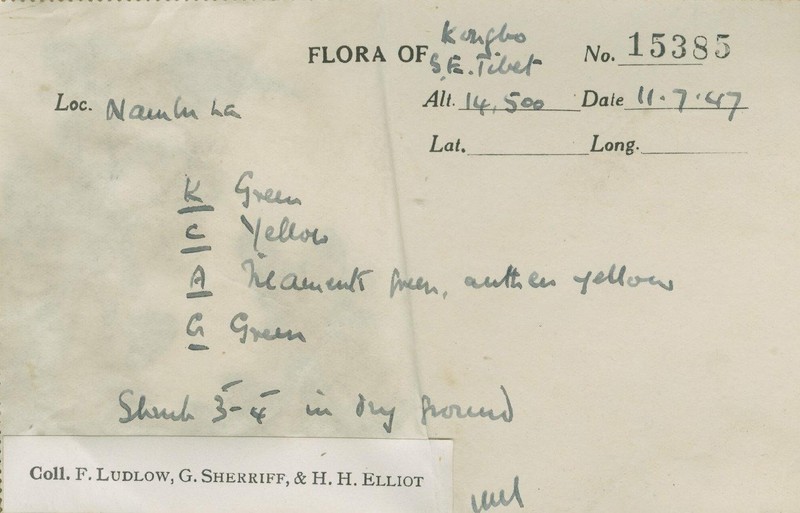 FLORA OF Kongbo
S.E. Tibet
No. 15385
Loc. Nambu La
Alt. 14,500 Date 11.7.47
Lat. Long.
K Green
C Yellow
A Filaments green, anthers yellow
G Green
Shrub 3'-4' in dry ground
Coll. F. LUDLOW, G. SHERRIFF, & H. H. ELLIOT